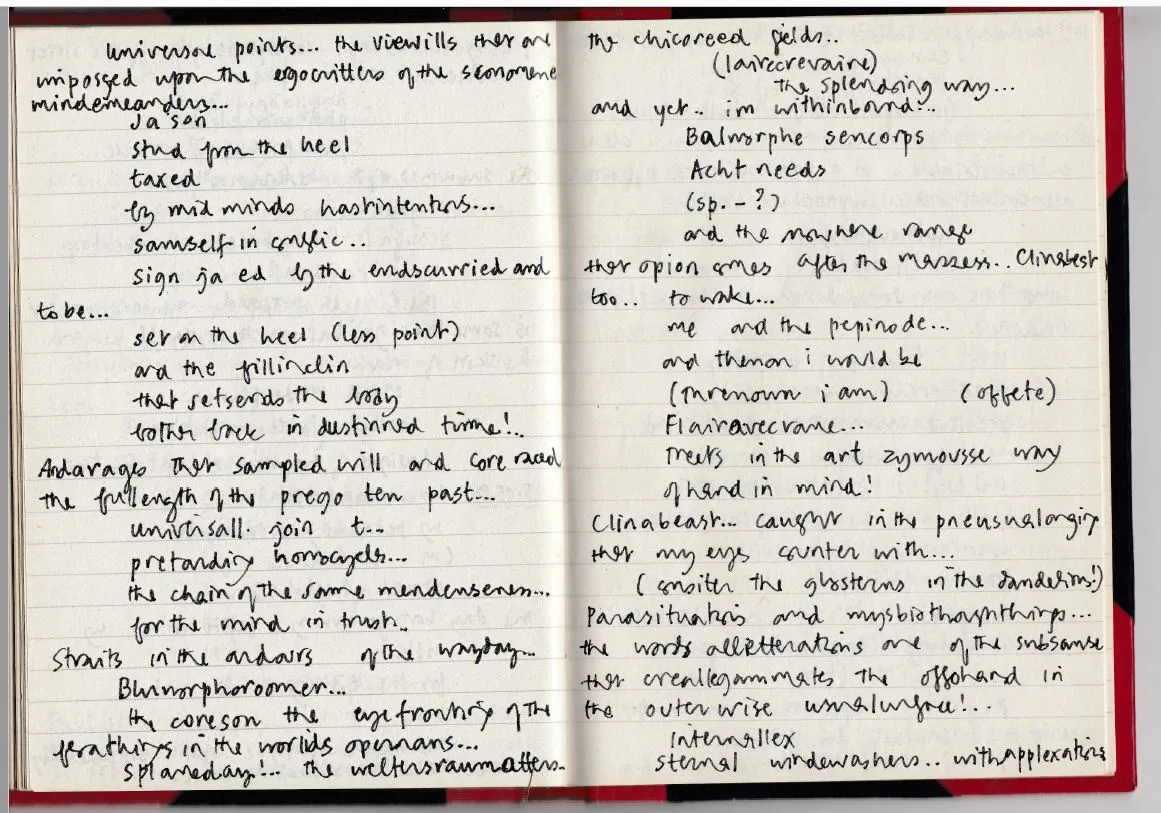 universal points... the viewills that are
imposged upon the ergocritters of the sconomene
mindemeanders...
Jason
stud from the heel
taxed
by mid minds hastintentns...
samself in conflic..
sign ja ed by the endscurried and
to be...
set on the heel (less point)
and the fillinclin
that setsends the body
bother back in dustinned timme!..
Andarages that sampled will and core raced
the fullength of the prego ten past...
univrisall join t...
pretandiry homocycels...
the chain of the same mendenseness...
for the mind in trush..
Straits in the ardours of the wayday...
Blumorphoroomer...
the coreson the eyefrontiry of the
ferathings in the worlds opernans...
splaneday!.. the weltersraumatters.
the chicoreed fields..
(lairecrevaine)
the splendoing way...
and yet.. im withinbound...
Balmorphe sencorps
Acht needs
(sp. - ?)
and the nowhere range
that opion comes after the mazzess.. Clinabest
too.. to wake...
me and the pepinode...
and thenon i would be
(inrenown i am) (offete)
Flairavecrane...
treets in the art zymousse way
of hand in mind!
Clinabeast... caught in the pneusualonging
that my eyes counter with...
(consiter the glosterns in the dandelins!)
Parasituations and mysbiothoughthings...
the words allitterations are of the subsanse
that creallegammates the offohand in
the outerwise usualurface!...
internallex
sternal windewashers.. withapplexations